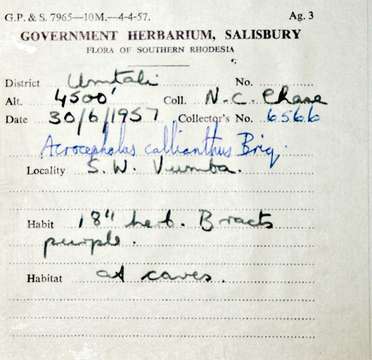 G.P. & S. 7965—10M.—4-4-57. Ag. 3
GOVERNMENT HERBARIUM, SALISBURY
FLORA OF SOUTHERN RHODESIA
District Umtali No.
Alt. 4500' Coll. N.C. Chase
Date 30/6/1957 Collector's No. 6566
Acrocephalus callianthus Briq.
Locality S.W. Vumba.
Habit 18" herb. Bracts
purple.
Habitat at caves.